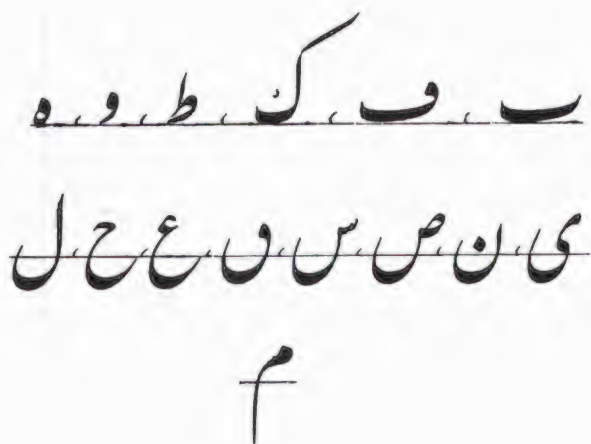 ٮ ، ڡ ، ک ، ط ، و ، ه
ی ، ن ، ص ، س ، ٯ ، ع ، ح ، ل
م